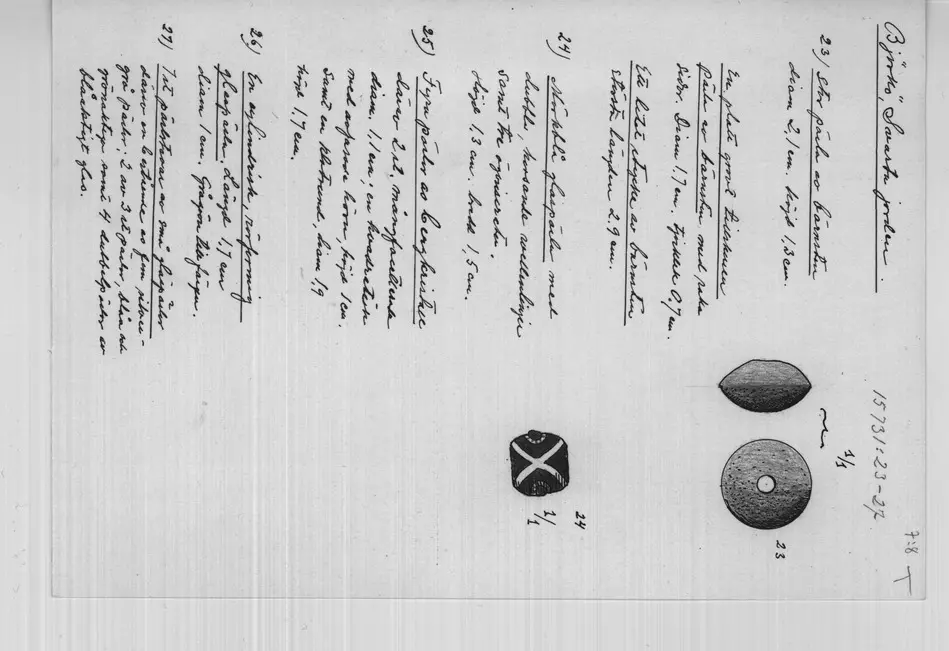 Björkö, Svarta jorden.
15731:23-27.
7:8
23) Stor pärla av bärnsten
diam 2,1 cm. höjd 1,3 cm.
En platt gjord
pärla av bärnsten med raka
sidor. Diam 1,7 cm. tjocklek 0,7 cm.
Ett litet stycke av bärnsten
största längden 2,9 cm.
1/1
23
24) Mörkblå glaspärla med
dubbla, korsande våglinjer
samt tre ögonircklar.
Höjd 1,3 cm. bredd 1,5 cm.
24
1/1
25) Fyra pärlor av bergkristall
därav 2 st. mångfacetterade
diam. 1,1 cm; en kvadratisk
med avfasade hörn, höjd 1 cm.
samt en klotrund, diam 1,9
höjd 1,7 cm.
26) En cylindrisk, rörformig
glaspärla. Längd 1,7 cm
diam 1 cm. färgen.
27) 7 st pärlor av små glaspärlor
därav en bestående av fem
grå pärlor, 2 av 3 st pärlor, blåa och
grönaktiga samt 4 dubbelpärlor av
blåaktigt glas.